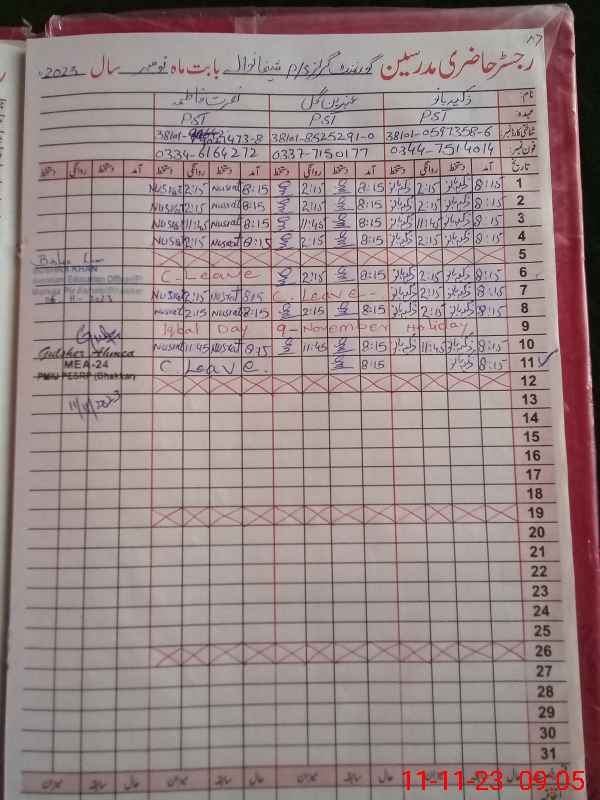 رجسٹر حاضری مدرسین گورنمنٹ گرلز P/S شیخانوالہ بابت ماہ نومبر سال 2023ء
نام: ذکیہ بانو عنبرین گل نصرت فاطمہ
عہدہ: PST PST PST
شناختی کارڈ نمبر: 38101-0597358-6 38101-8525291-0 38101-
فون نمبر: 0344-7514014 0337-7150177 0334-6164272
تاریخ آمد دستخط روانگی دستخط آمد دستخط روانگی دستخط آمد دستخط روانگی دستخط آمد دستخط روانگی دستخط
1 8:15 ذکیہ بانو 2:15 ذکیہ بانو 8:15 2:15 8:15 Nusrat 2:15 Nusrat
2 8:15 ذکیہ بانو 2:15 ذکیہ بانو 8:15 2:15 8:15 Nusrat 2:15 Nusrat
3 8:15 ذکیہ بانو 11:45 ذکیہ بانو 8:15 11:45 8:15 Nusrat 11:45 Nusrat
4 8:15 ذکیہ بانو 2:15 ذکیہ بانو 8:15 2:15 8:15 Nusrat 2:15 Nusrat
5
6 8:15 ذکیہ بانو 2:15 ذکیہ بانو 8:15 2:15 C. Leave
7 8:15 ذکیہ بانو 2:15 ذکیہ بانو C. Leave - 8:15 Nusrat 2:15 Nusrat
8 8:15 ذکیہ بانو 2:15 ذکیہ بانو 8:15 2:15 8:15 Nusrat 2:15 Nusrat
9 Iqbal Day 9-November Holiday
10 8:15 ذکیہ بانو 11:45 ذکیہ بانو 8:15 11:45 8:15 Nusrat 11:45 Nusrat
11 8:15 ذکیہ بانو 8:15 C. Leave.
12
13
14
15
16
17
18
19
20
21
22
23
24
25
26
27
28
29
30
31
KHAN
Assistant Education Officer
Gulsher Ahmed
MEA-24
PMIU PESRP (Bhakkar)
11/11/2023
حال سابقہ میزان حال سابقہ میزان
11-11-23 09:05